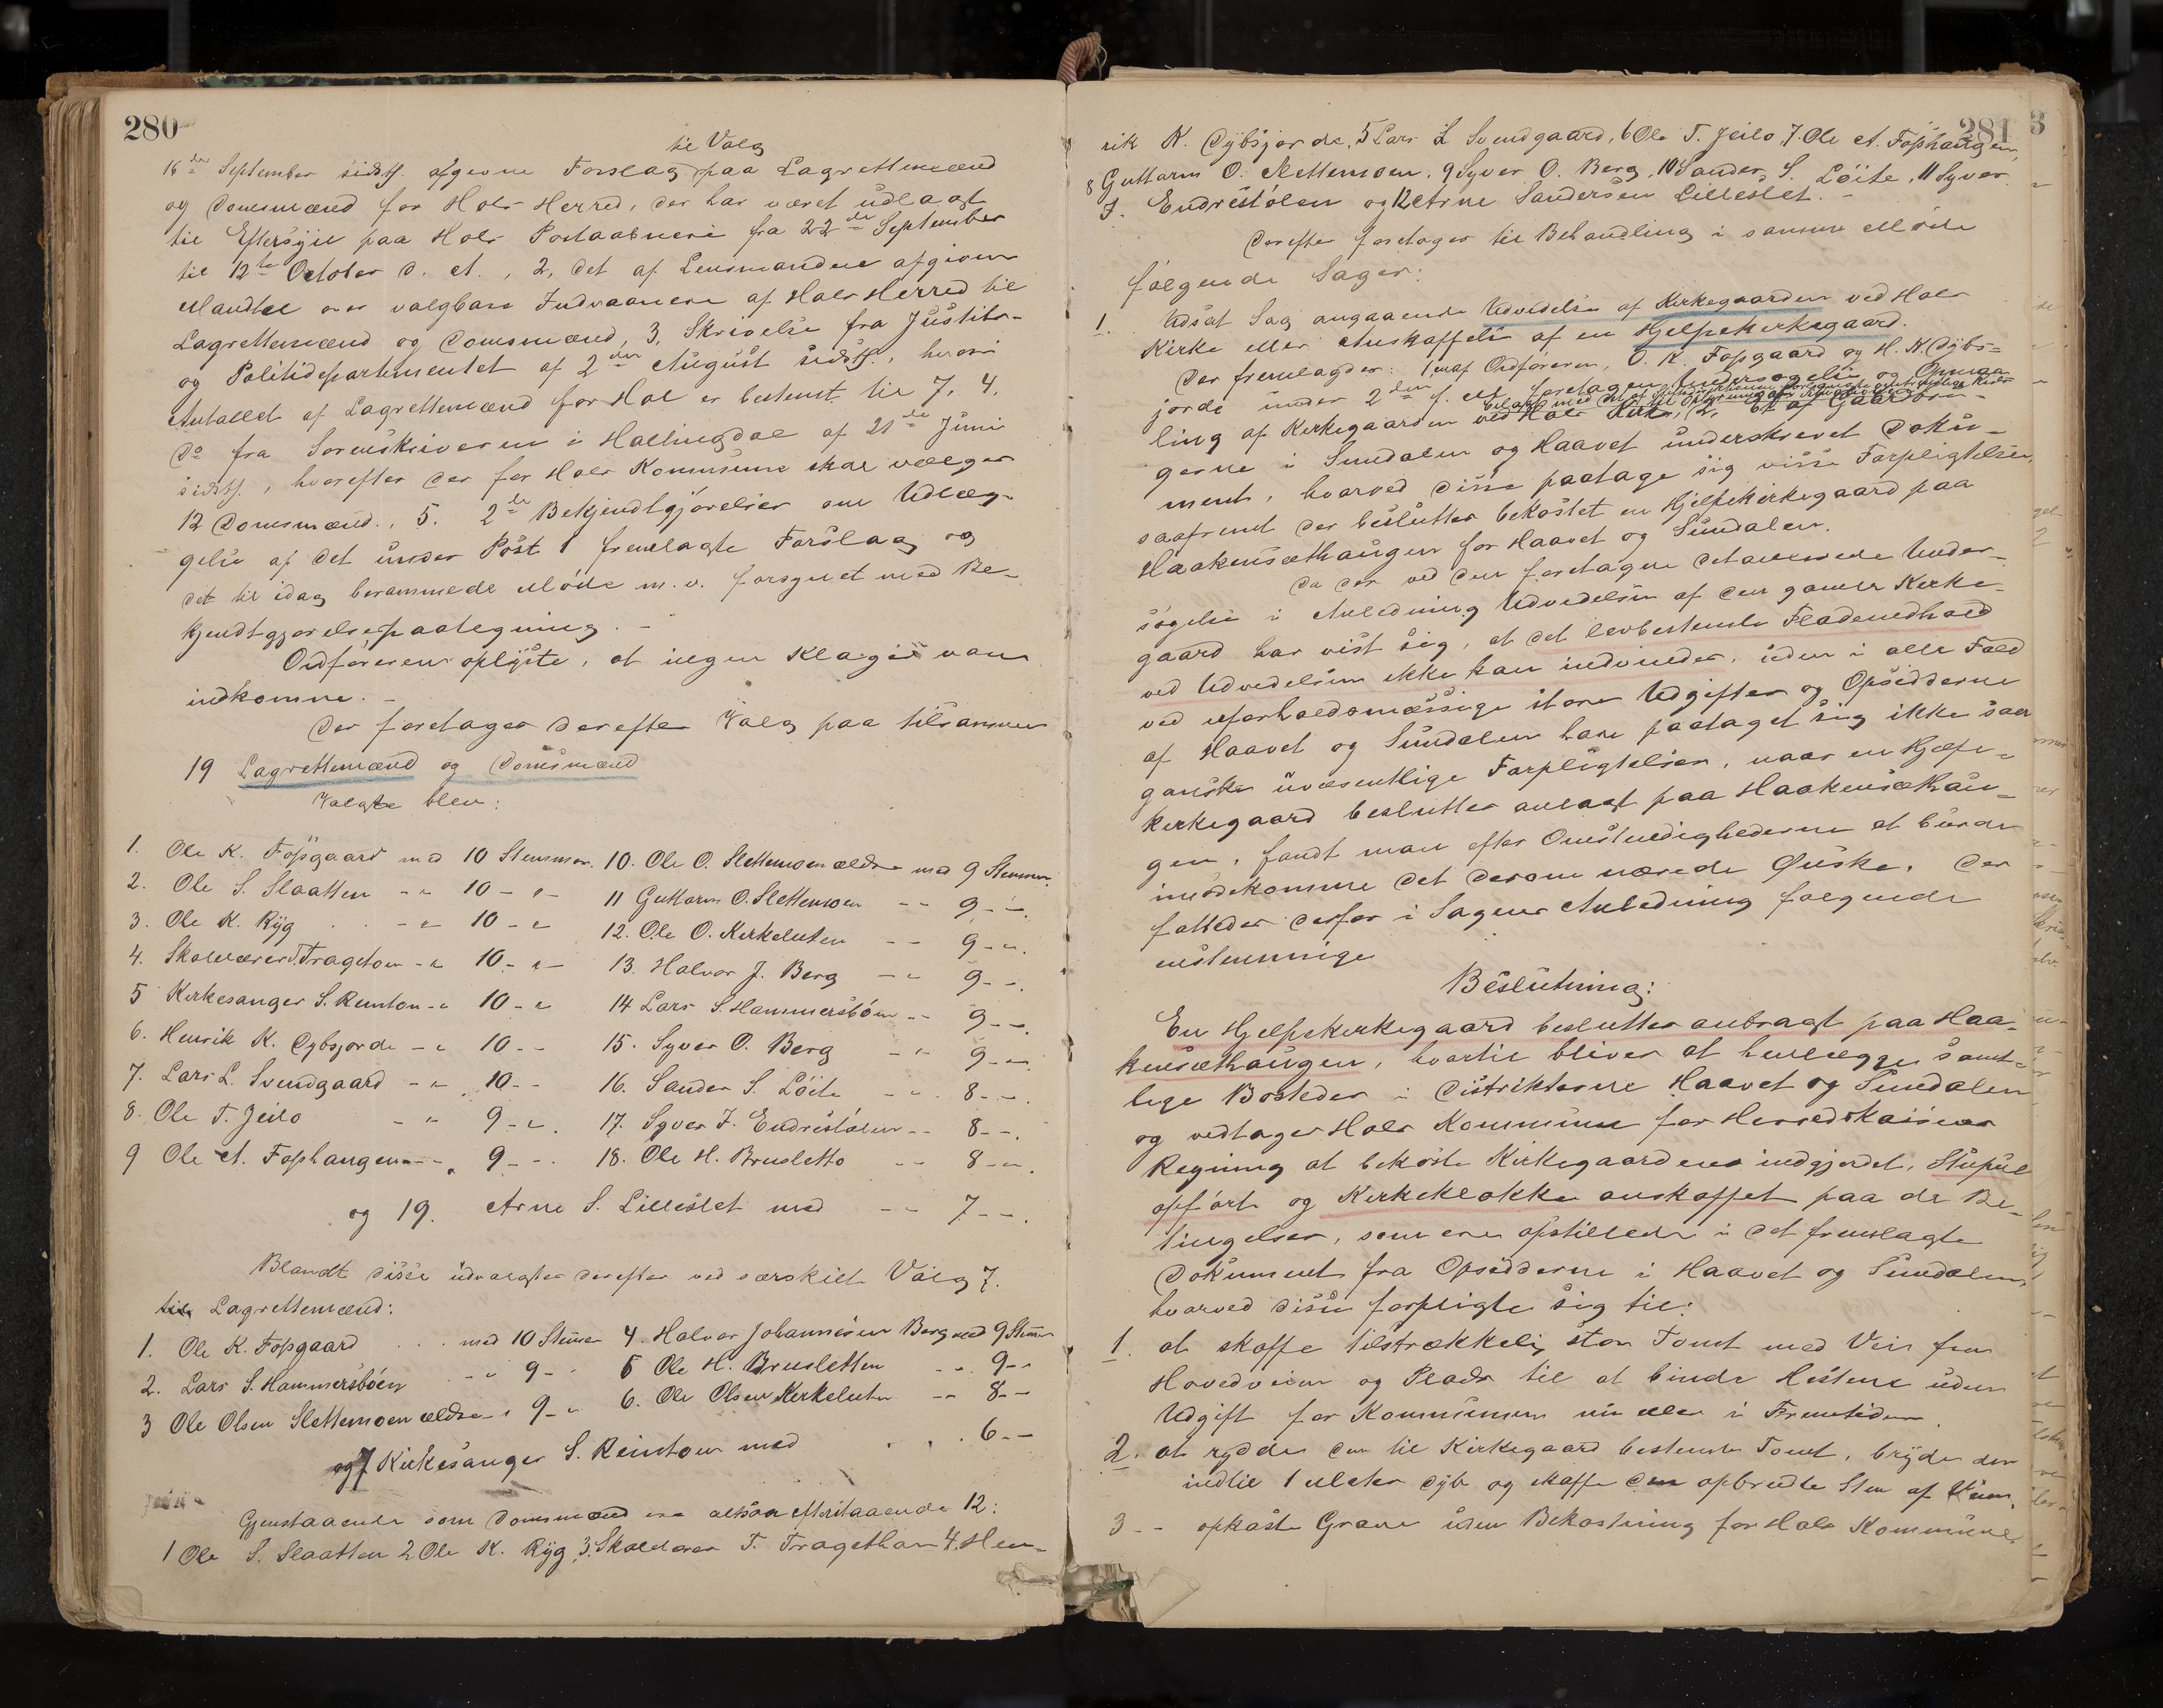 280
til Valg
16de September sidstl. afgivne Forslag paa Lagrettemænd
og Domsmænd for Hols Herred, der har været udlagt
til Eftersyn paa Hols Postaabneri fra 22de September
til 12te October d. A., 2, det af Lensmanden afgivne
Mandtal over valgbare Indvaanere af Hols Herred til
Lagrettemænd og Domsmænd, 3, Skrivelse fra Justits-
og Politidepartementet af 2den August sidstl., hvori
Antallet af Lagrettemænd for Hol er bestemt til 7, 4,
Do fra Sorenskriveren i Hallingdal af 21de Juni
sidstl., hvorefter der for Hols Kommune skal vælges
12 Domsmænd., 5. 2de Bekjendtgjørelser om Udlæg-
gelse af det under Post 1 fremlagte Forslag og
det til idag berammede Møde m. v. forsynet med Be-
kjendtgjørelsespaategning. -
Ordføreren oplyste, at ingen Klager var
indkomne. -
Der foretages derefter Valg paa tilsammen
19 Lagrettemænd og Domsmænd
Valgte blev:
1. Ole K. Fopsgaard med 10 Stemmer. 10. Ole O. Slettemoen ældre med 9 Stemmer.
2. Ole S. Slaatten - " 10 - " - 11 Guttorm O. Slettemoen - - 9 - -.
3. Ole K. Ryg - " 10 - " 12. Ole O. Kirkeluten - - 9 - ".
4. Skolelærer T. Fragetom - " 10 - " - 13. Halvor J. Berg - " 9 - -.
5 Kirkesanger S. Reinton - " 10 - " 14 Lars S. Hammersbøen - - 9 - -.
6. Henrik K. Dybsjorde - " 10 - - 15. Syver O. Berg - " 9 - -.
7. Lars L. Svendgaard - " 10 - - 16. Sander S. Løite - " 8 - -.
8. Ole T. Jeilo - " 9 - ". 17. Syver J. Endrestølen - - 8 - -.
9 Ole A. Fophaugen - - " 9 - -. 18. Ole H. Brusletto - - 8 - -.
og 19. Arne S. Lilleslet med - - 7 - -.
Blandt disse udvalgtes derefter ved særskilt Valg 7.
til Lagrettemænd:
1. Ole K. Fopsgaard . . . med 10 Stemmer 4. Halvor Johannesen Berg med 9 Stemmer
2. Lars S. Hammersbøen - " 9 - - 5 Ole H. Brusletten - - 9 - -
3 Ole Olsen Slettemoen ældre - " 9 - " 6. Ole Olsen Kirkeluten - - 8 - -
og 7 Kirkesanger S. Reinton med . . . 6 - -
Gjenstaaende som Domsmænd er altsaa efterstaaende 12:
1 Ole S. Slaatten 2 Ole K. Ryg, 3. Skolelærer T. Fragethon 4. Hen-
281
3
rik K. Dybsjorde, 5 Lars L Svendgaard, 6 Ole T. Jeilo, 7. Ole A. Fophaugen,
8 Guttorm O. Slettemoen, 9 Syver O. Berg, 10 Sander S. Løite, 11 Syver
J. Endrestølen og 12 Arne Sandersen Lilleslet. -
Derefter foretages til Behandling i samme Møde
følgende Sager:
1. Udsat Sag angaaende Udvidelse af Kirkegaarden ved Hols
Kirke eller Anskaffelse af en Hjelpekirkegaard.
Der fremlagdes: 1, en af Ordføreren, O. K. Fopsgaard og H. K. Dybs-
jorde under 2den f. M. foretagen Undersøgelse og Opmaa-
ling af Kirkegaarden ved Hols Kirke, 2, Et af Gaardbru-
gerne i Sundalen og Haavet underskrevet Doku-
ment, hvorved disse paatage sig visse Forpligtelser,
saafremt der besluttes bekostet en Hjelpekirkegaard paa
Haakensæthaugen for Haavet og Sundalen.
Da der ved den foretagne detaillerede Under-
søgelse i Anledning Udvidelsen af den gamle Kirke-
gaard har vist sig, at det lovbestemte Fladenedhold
ved Udvidelsen ikke kan indvindes, uden i alle Fald
ved uforholdsmæssige store Udgifter og Opsidderne
af Haavet og Sundalen have paataget sig ikke saa
ganske uvæsentlige Forpligtelser, naar en Hjelpe-
kirkegaard besluttes anlagt paa Haakensæthau-
gen, fandt man efter Omstændighederne at burde
imødekomme det derom nærede Ønske. Der
fattedes derfor i Sagens Anledning følgende
enstemmige
Beslutning:
En Hjelpekirkegaard besluttes anbragt paa Haa-
kensæthaugen, hvortil bliver at henlægge samt-
lige Bosteder i Distrikterne Haavet og Sundalen
og vedtager Hols Kommune for Herredskassens
Regning at bekoste Kirkegaarden indgjerdet, Støpul
opført og Kirkeklokke anskaffet paa de Be-
tingelser, som ere opstillede i det fremlagte
Dokument fra Opsidderne i Haavet og Sundalen,
hvorved disse forpligte sig til:
1. at skaffe tilstrækkelig stor Tomt med Vei fra
Hovedveien og Plads til at binde Hestene uden
Udgift for Kommunen nu eller i Fremtiden.
2. at rydde den til Kirkegaard bestemte Tomt, bryde den
indtil 1 Meter dyb og skaffe den opbrudte Sten af Veien.
3 - - opkaste Grave uden Bekostning for Hols Kommune